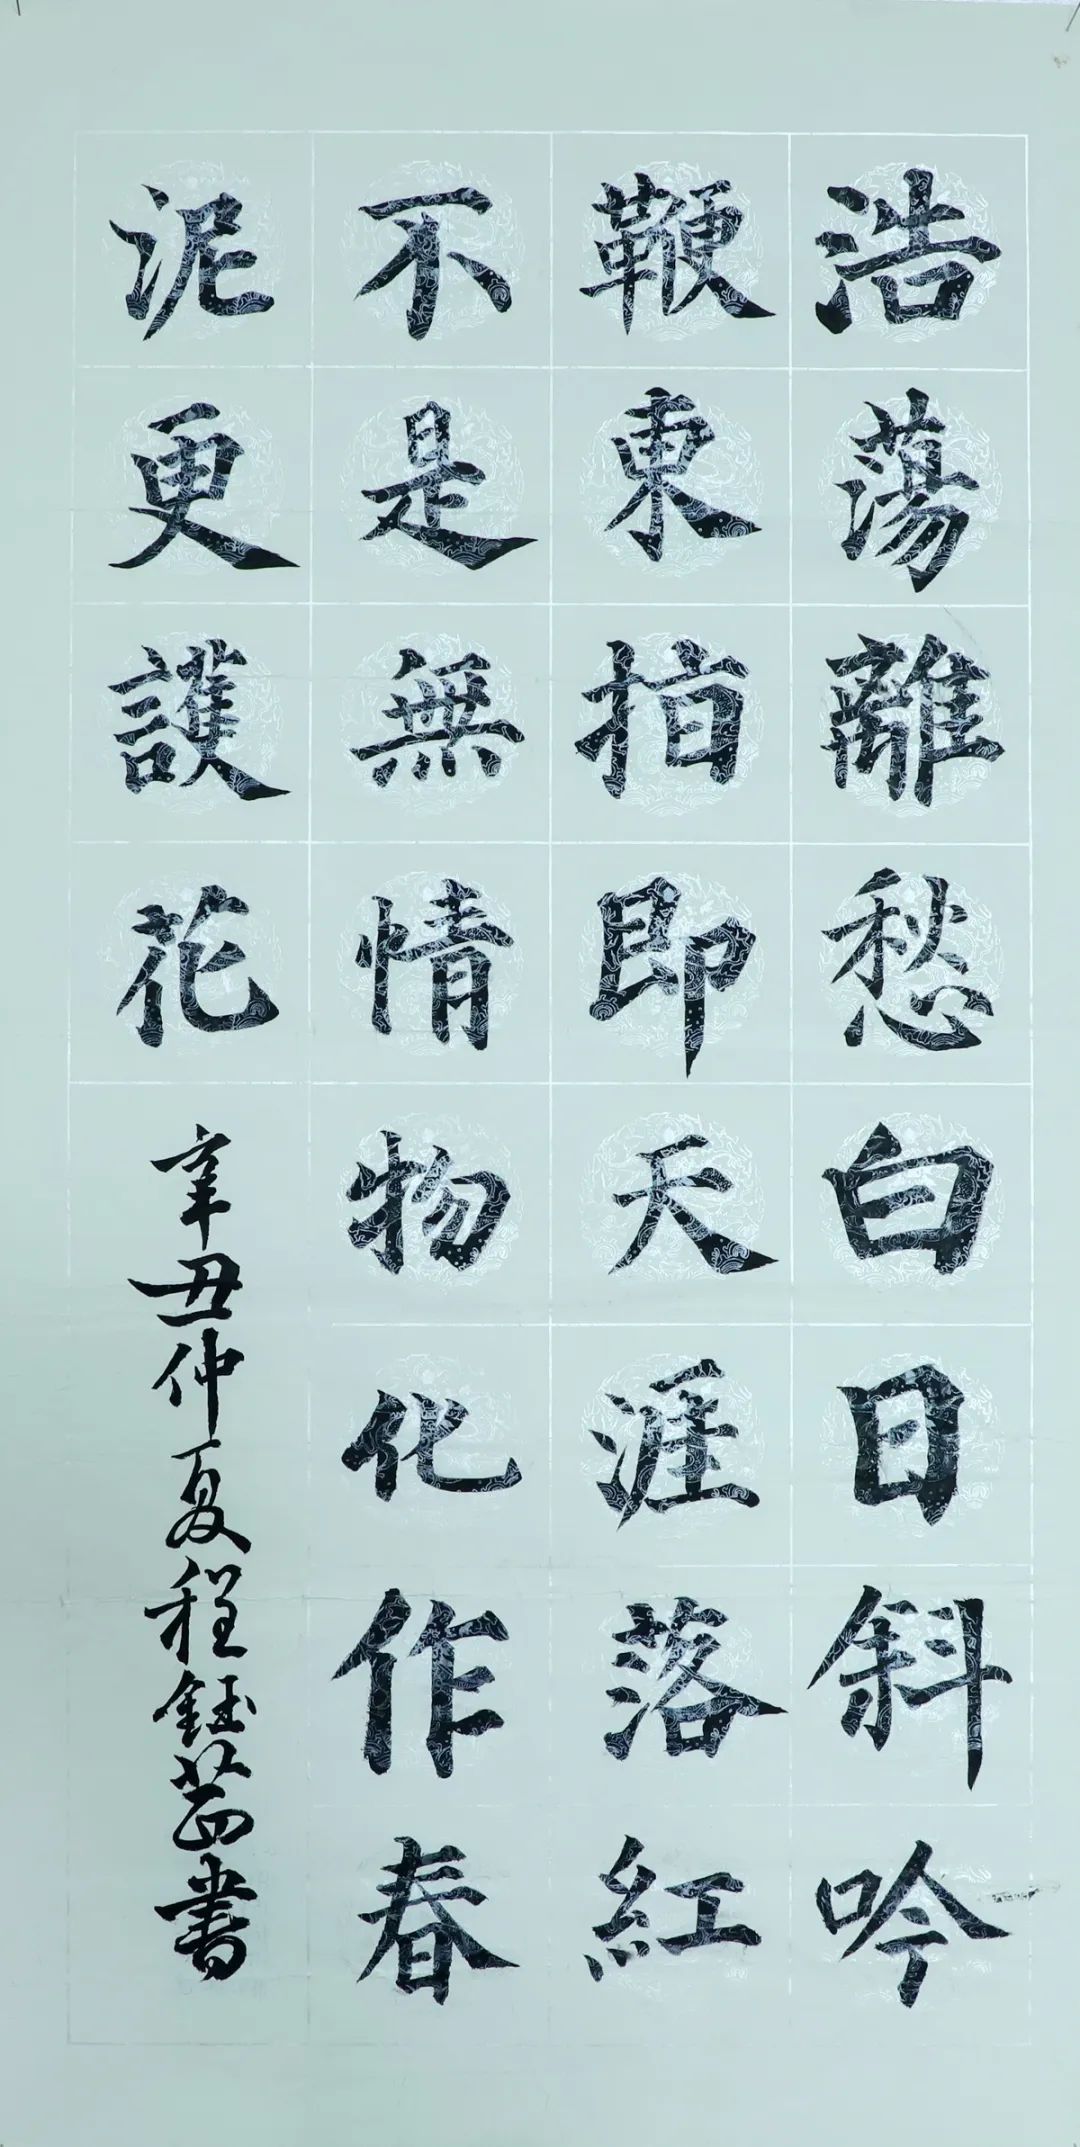 浩蕩離愁白日斜吟
鞭東指即天涯落紅
不是無情物化作春
泥更護花
辛丑仲夏程鈺書